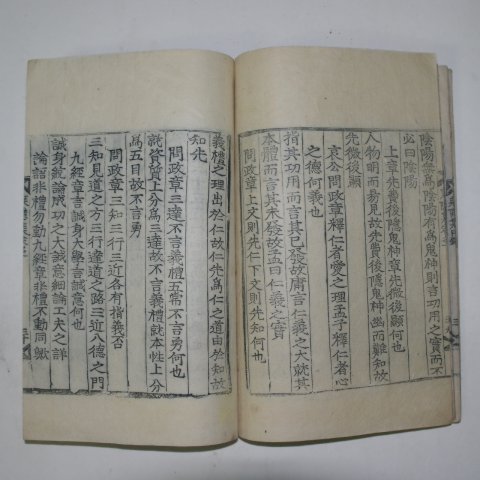 陰陽無爲陰陽有爲鬼神則言功用之實而不
必曰陰陽
上章先費後隱鬼神章先微後顯何也
人物明而易見故先費後隱鬼神幽而難知故
先微後顯
哀公問政章釋仁者愛之理孟子釋仁者心
之德何義
指其功用而言其已發故庸言仁義之大就其
本體而言其未發故孟曰仁義之實
問政章上文則先仁下文則先知何也
義禮之理出於仁故仁先爲仁之道由於知故
知先
問政章三達不言義禮五常不言勇何也
就資質上分爲三達故不言義禮就本性上分
爲五目故不言勇
問政章三知三行三近各有指義否
三知見道之方三行達道之路三近入德之門
九經章言誠身大學言誠意何也
誠身統論成功之大誠意細論工夫之詳
論語非禮勿動九經章非禮不動同歟